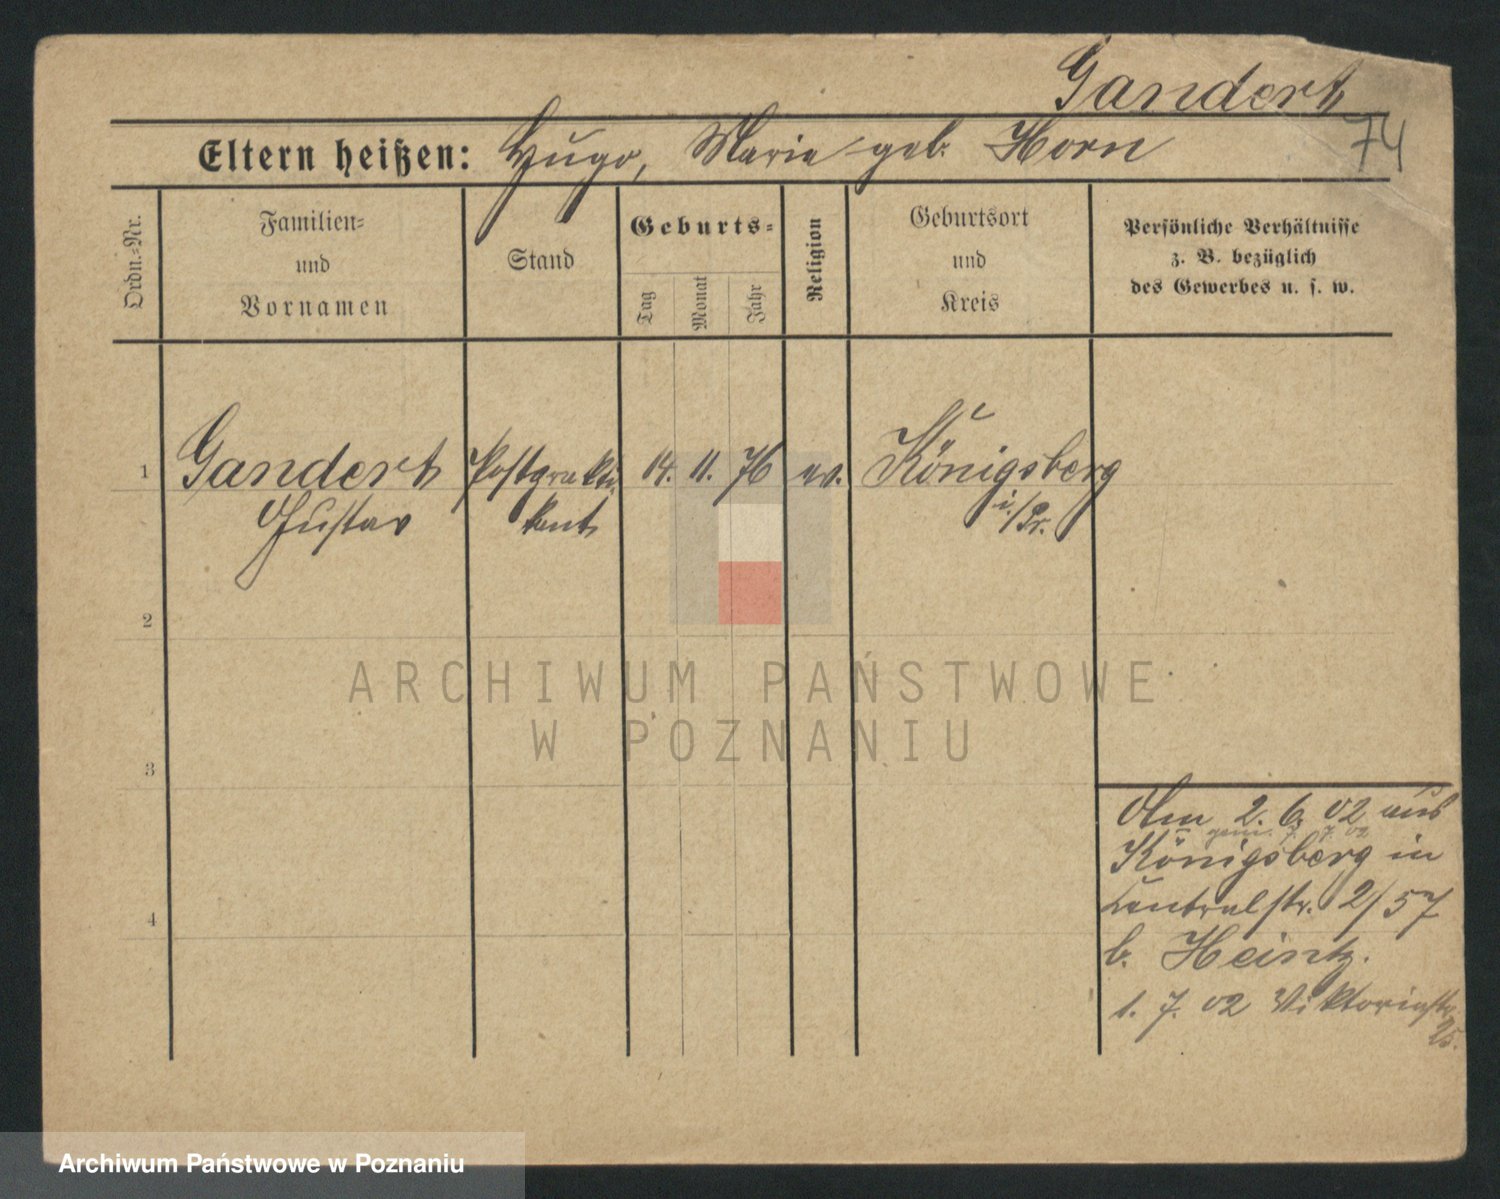 Gandert
74
Eltern heißen: Hugo, Marie geb. Horn
Ordn.-Nr.
Familien-
und
Vornamen
Stand
Geburts-
Tag
Monat
Jahr
Religion
Geburtsort
und
Kreis
Persönliche Verhältnisse
z. B. bezüglich
des Gewerbes u. s. w.
1 Gandert Postprakti 14. 11. 76 ev. Königsberg
Gustav kant i/Pr.
2
ARCHIWUM PAŃSTWOWE
W POZNANIU
3
Am 2. 6. 02 aus
gem. 7. 7. 02
Königsberg in
Centralstr. 2/57
4
b. Heintz.
1. 7. 02 Viktoriastr.
25.
Archiwum Państwowe w Poznaniu